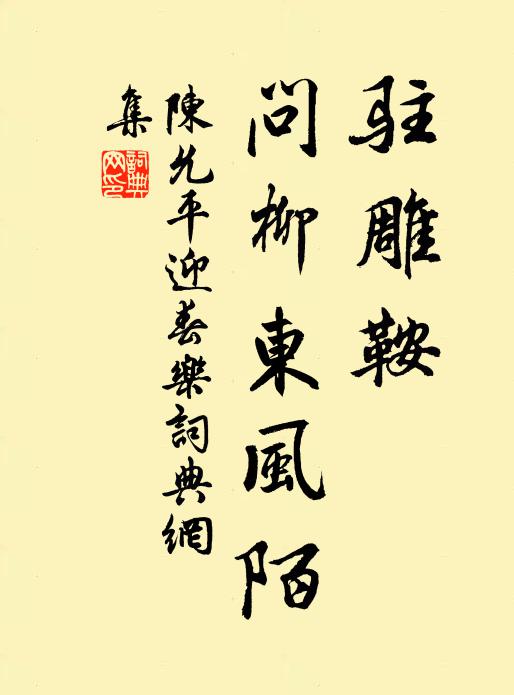 駐雕鞍
問柳東風陌
陳允平迎春樂詞典網
集
詞典
网印